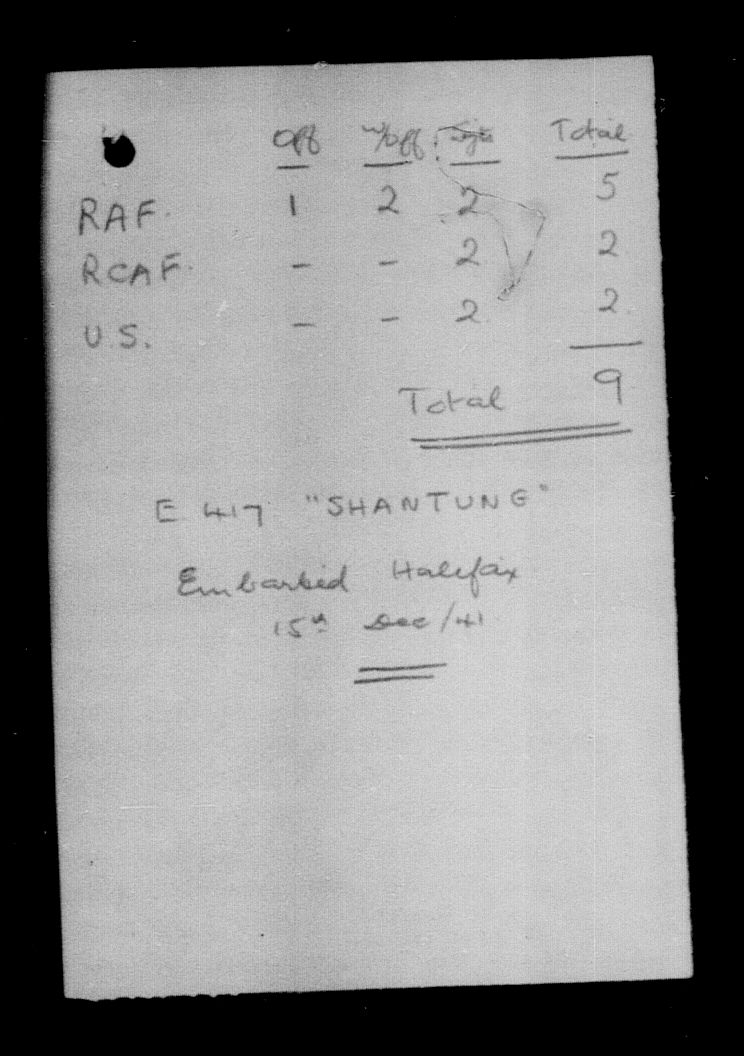 Off W/Off Sgts Total
RAF. 1 2 2 5
RCAF. - - 2 2
U.S. - - 2 2
Total 9
E 417 "SHANTUNG"
Embarked Halifax
15th Dec/41